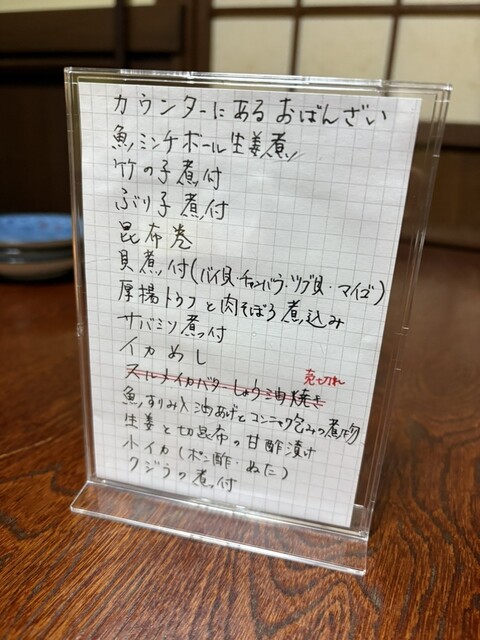 カウンターにあるおばんざい
魚ミンチボール生姜煮
竹の子煮付
ぶり子煮付
昆布巻
貝煮付(バイ貝・チャンバラ・ツブ貝・マイゴ)
厚揚トウフと肉そぼろ煮込み
サバミソ煮付
イカめし
売切れ
スルメイカバターしょう油焼き
魚すりみ入油あげとコンニャク包みの煮物
生姜と切昆布の甘酢漬け
小イカ(ポン酢・ぬた)
クジラの煮付